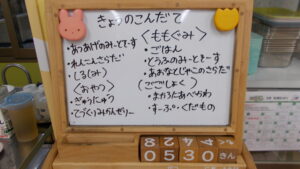 きょうのこんだて
・あつあげのみーとそーす
・れんこんさらだ
・しる(みそ)
〈おやつ〉
・ぎゅうにゅう
・てづくりみかんぜりー
〈ももぐみ〉
・ごはん
・とうふのみーとそーす
・あおなとじゃこのさらだ
(ごごしょく)
・まかろにあべかわ
・すーぷ・くだもの
0530 さん